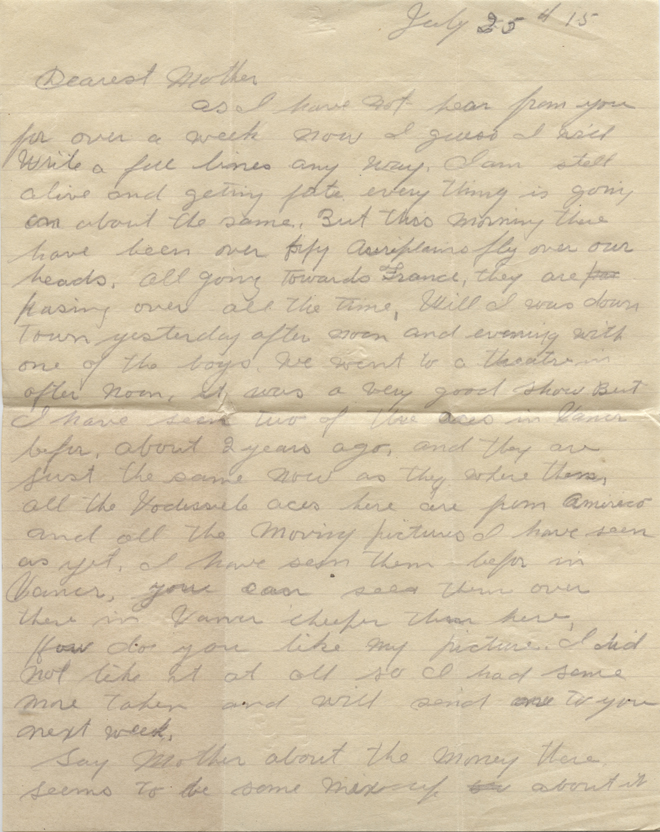 July 25th 15
Dearest Mother
as I have not hear from you
for over a week now I guess I will
Write a few lines any way. I am still
alive and geting fate every thing is going
on about the same. But this morning there
have been over fify Aureplains fly over our
heads. all going Towards France, they are
pasing over all the time, Will I was down
Town yesterday after noon and evening with
one of the boys. we went to a theatre in
after noon, it was a very good show But
I have seen two of the aces in Vancr
befor, about 2 years ago, and they are
just the same now as they where then,
all the Vodissele aces here are from America
and all the moving pictures I have seen
as yet. I have seen them befor in
Vancr, you can see them over
there in Vancr cheeper then here,
How do you like my picture. I did
not like it at all so I had some
more taken and will send one to you
next week.
Say Mother about the money there
seems to be some about it